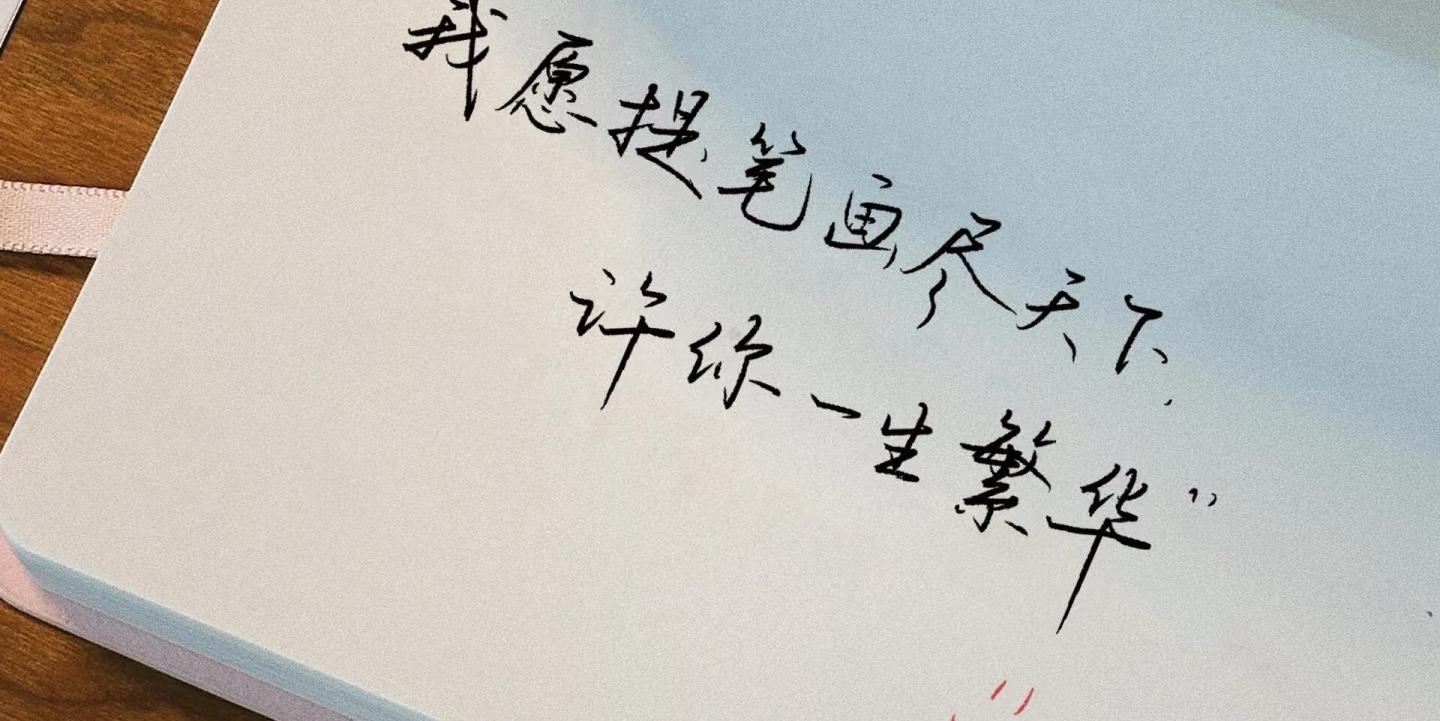 我愿提笔画尽天下
许你一生繁华”